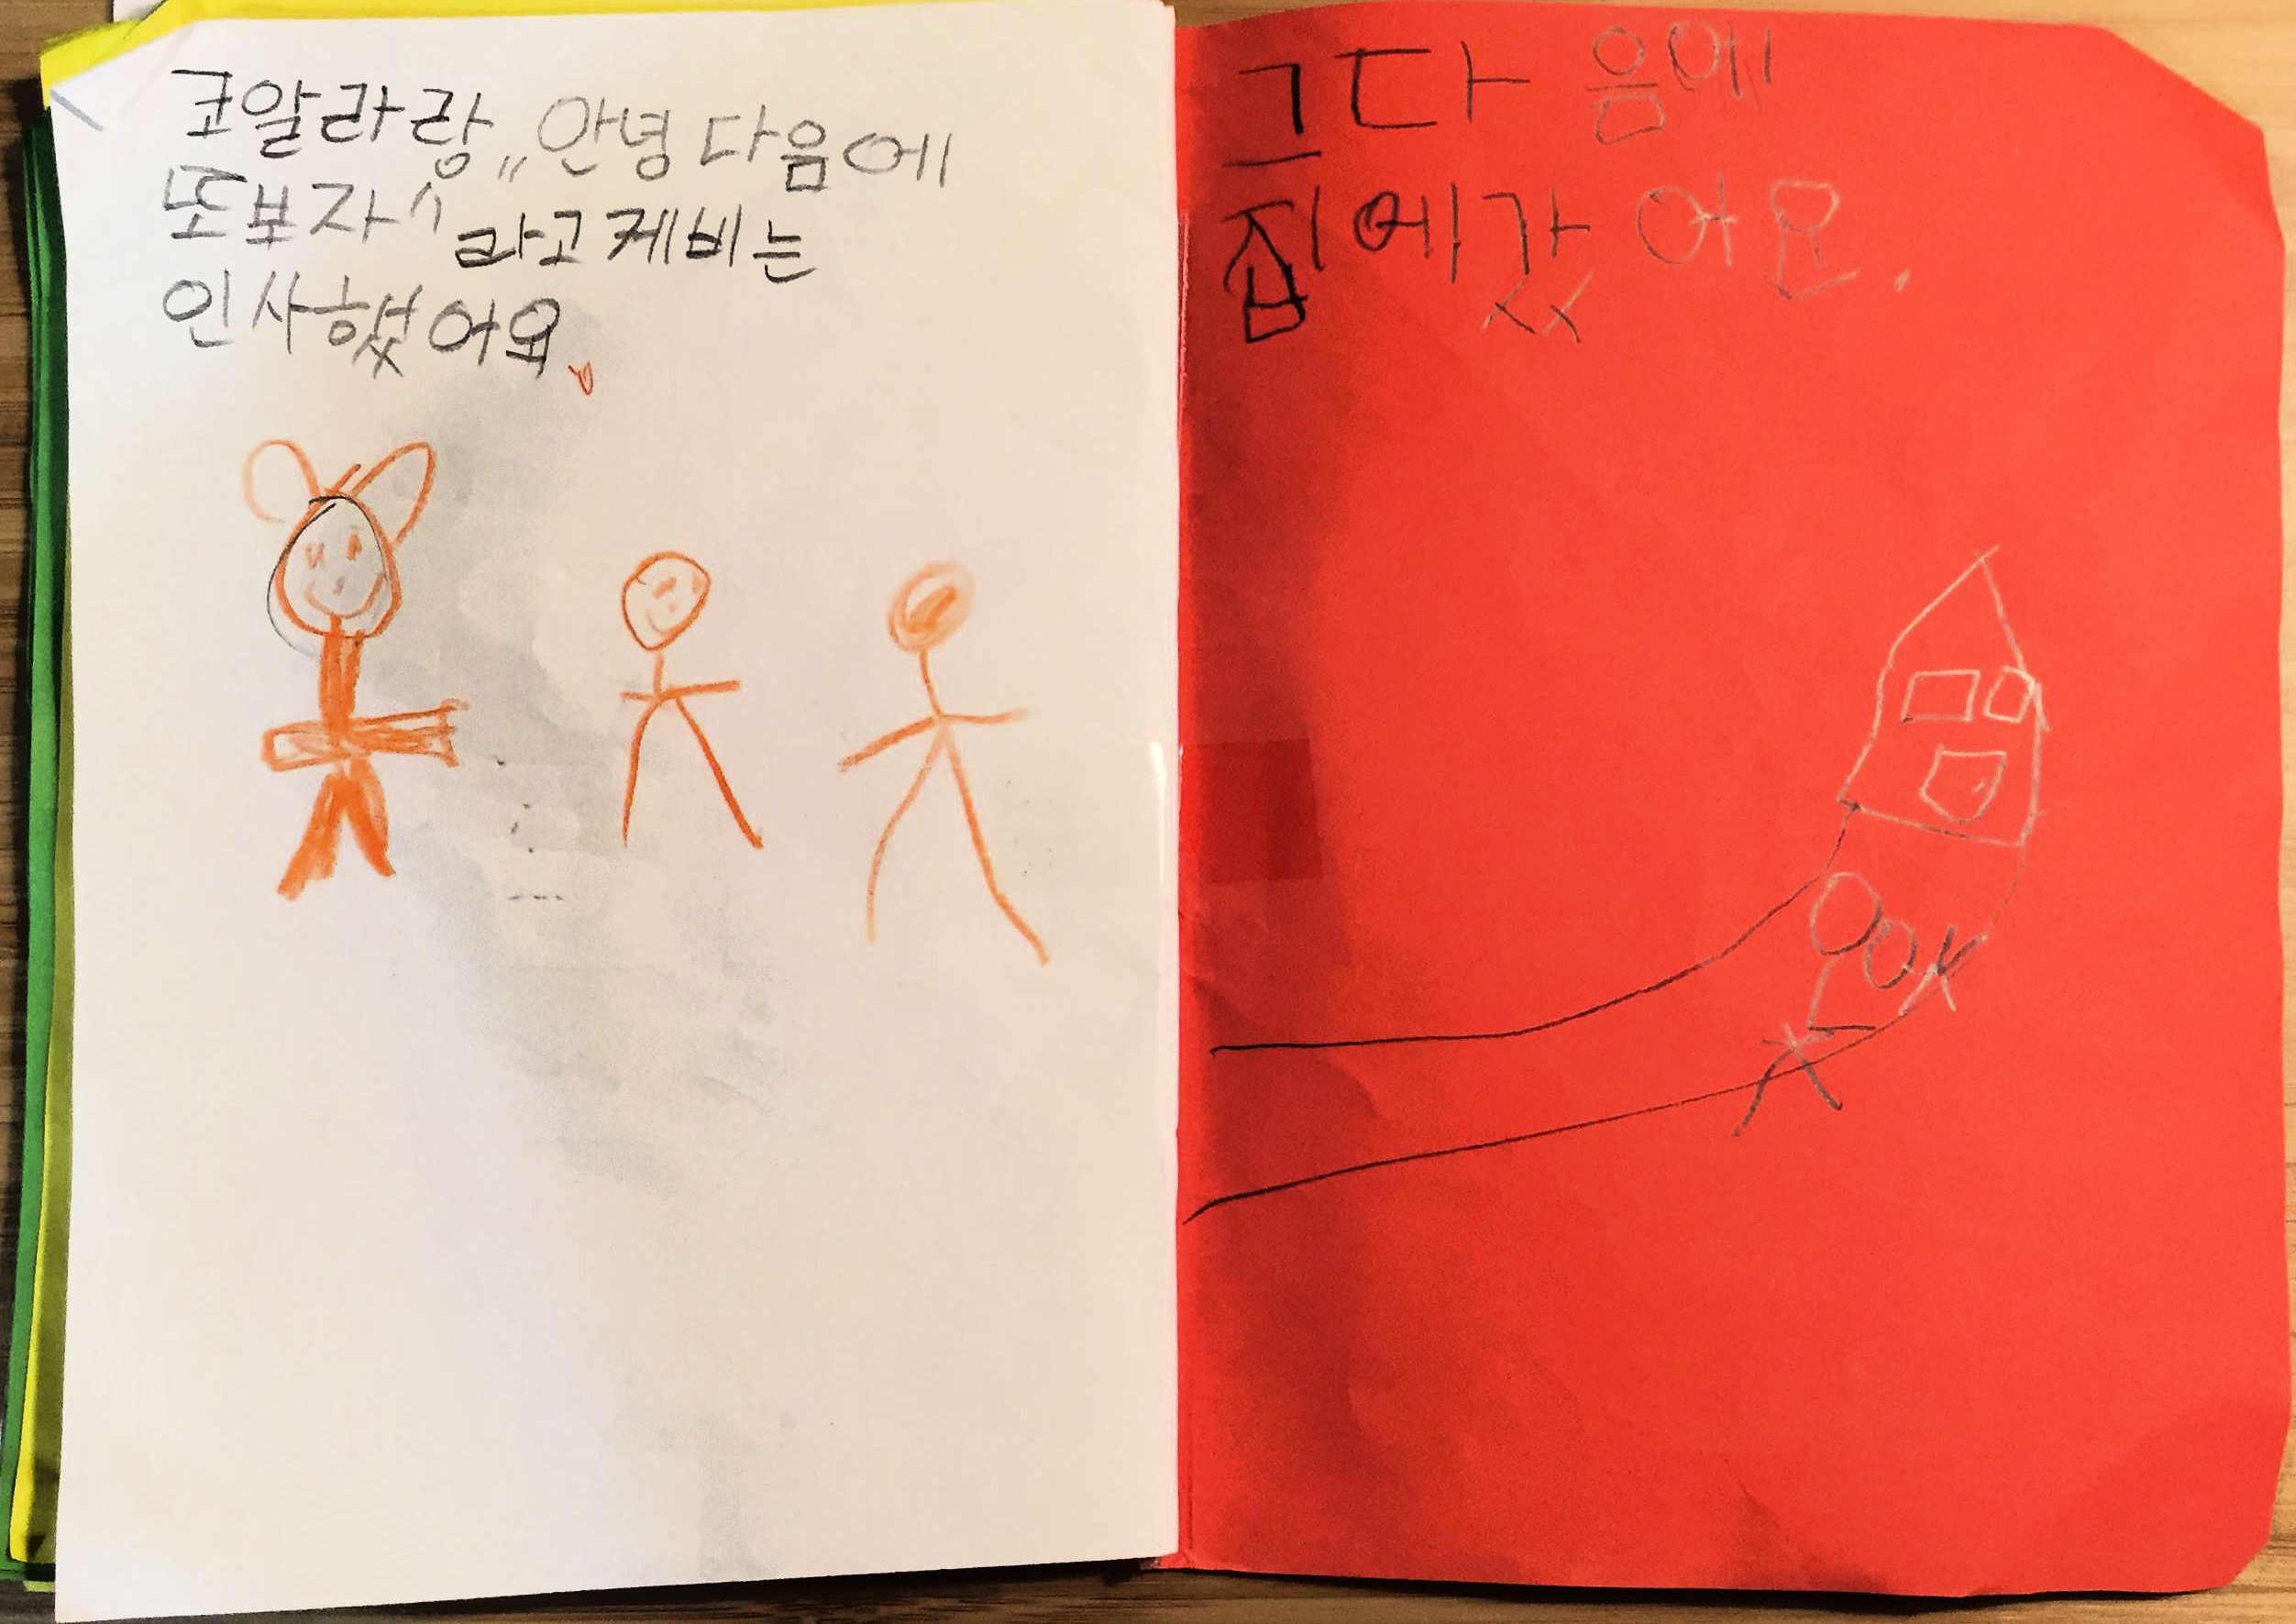 코알라랑 "안녕 다음에
또 보자" 라고 케비는
인사했어요.
그 다음에
집에 갔어요.